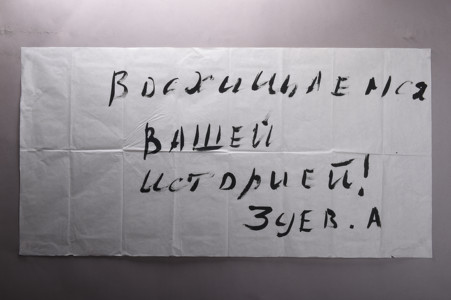 Восхищаемся
ВАШЕЙ
ИСТОРИЕЙ!
ЗУЕВ. А